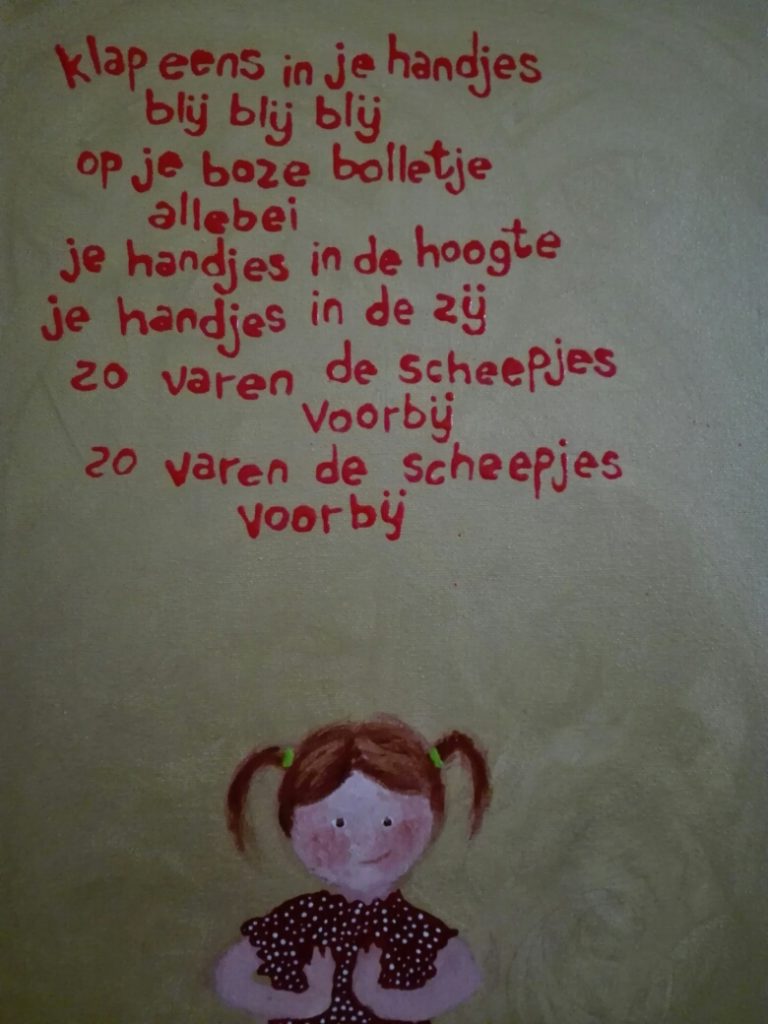 klap eens in je handjes
blij blij blij
op je boze bolletje
allebei
je handjes in de hoogte
je handjes in de zij
zo varen de scheepjes
voorbij
zo varen de scheepjes
voorbij